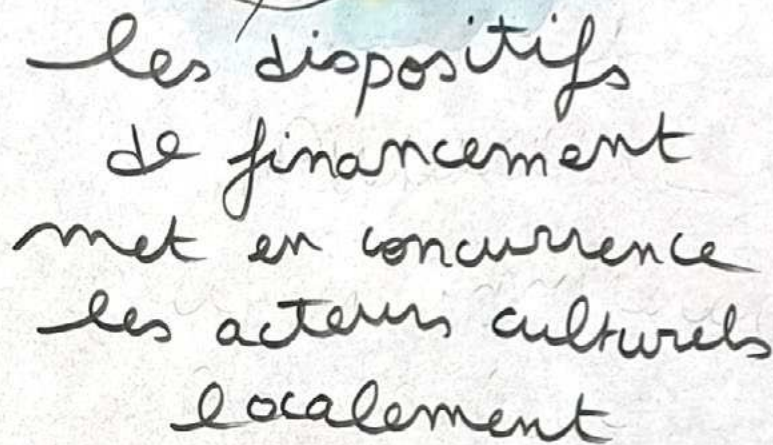 les dispositifs
de financement
met en concurrence
les acteurs culturels
localement